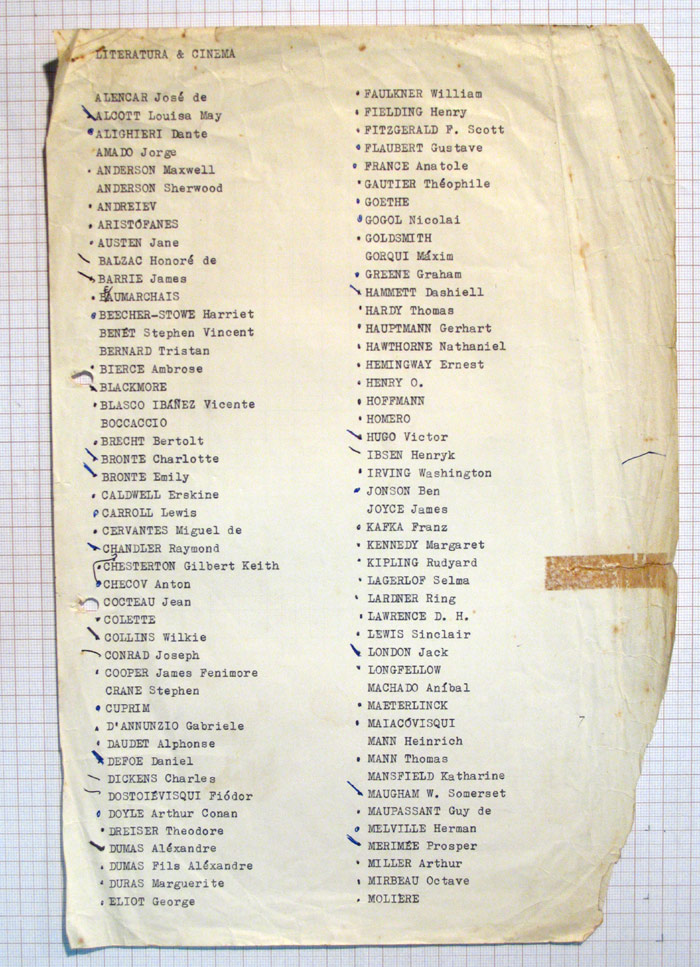 LITERATURA & CINEMA
ALENCAR José de
ALCOTT Louisa May
ALIGHIERI Dante
AMADO Jorge
ANDERSON Maxwell
ANDERSON Sherwood
ANDREIEV
ARISTÓFANES
AUSTEN Jane
BALZAC Honoré de
BARRIE James
BEAUMARCHAIS
BEECHER-STOWE Harriet
BENÉT Stephen Vincent
BERNARD Tristan
BIERCE Ambrose
BLACKMORE
BLASCO IBÁÑEZ Vicente
BOCCACCIO
BRECHT Bertolt
BRONTE Charlotte
BRONTE Emily
CALDWELL Erskine
CARROLL Lewis
CERVANTES Miguel de
CHANDLER Raymond
CHESTERTON Gilbert Keith
CHECOV Anton
COCTEAU Jean
COLETTE
COLLINS Wilkie
CONRAD Joseph
COOPER James Fenimore
CRANE Stephen
CUPRIM
D'ANNUNZIO Gabriele
DAUDET Alphonse
DEFOE Daniel
DICKENS Charles
DOSTOIÉVISQUI Fiódor
DOYLE Arthur Conan
DREISER Theodore
DUMAS Aléxandre
DUMAS Fils Aléxandre
DURAS Marguerite
ELIOT George
FAULKNER William
FIELDING Henry
FITZGERALD F. Scott
FLAUBERT Gustave
FRANCE Anatole
GAUTIER Théophile
GOETHE
GOGOL Nicolai
GOLDSMITH
GORQUI Máxim
GREENE Graham
HAMMETT Dashiell
HARDY Thomas
HAUPTMANN Gerhart
HAWTHORNE Nathaniel
HEMINGWAY Ernest
HENRY O.
HOFFMANN
HOMERO
HUGO Victor
IBSEN Henryk
IRVING Washington
JONSON Ben
JOYCE James
KAFKA Franz
KENNEDY Margaret
KIPLING Rudyard
LAGERLOF Selma
LARDNER Ring
LAWRENCE D. H.
LEWIS Sinclair
LONDON Jack
LONGFELLOW
MACHADO Aníbal
MAETERLINCK
MAIACÓVISQUI
MANN Heinrich
MANN Thomas
MANSFIELD Katharine
MAUGHAM W. Somerset
MAUPASSANT Guy de
MELVILLE Herman
MERIMÉE Prosper
MILLER Arthur
MIRBEAU Octave
MOLIÈRE